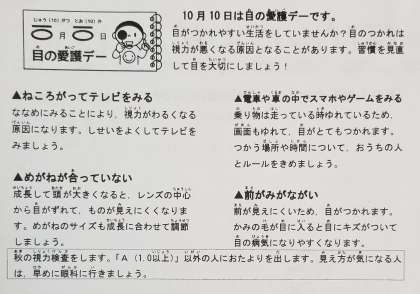 じゅう(10)がつ とお(10)か
月 日
目の愛護デー
10月10日は目の愛護デーです。
目がつかれやすい生活をしていませんか？目のつかれは
視力が悪くなる原因となることがあります。習慣を見直
して目を大切にしましょう！
▲ねころがってテレビをみる
ななめにみることにより、視力がわるくなる
原因になります。しせいをよくしてテレビを
みましょう。
▲めがねが合っていない
成長して頭が大きくなると、レンズの中心
から目がずれて、ものが見えにくくなりま
す。めがねのサイズも成長に合わせて調節
しましょう。
▲電車や車の中でスマホやゲームをみる
乗り物は走っている時ゆれているため、
画面もゆれて、目がとてもつかれます。
つかう場所や時間について、おうちの人
とルールをきめましょう。
▲前がみがながい
前が見えにくいため、目がつかれます。
かみの毛が目に入ると目にキズがついて
目の病気になりやすくなります。
秋の視力検査をします。「A（1.0以上）」以外の人におたよりを出します。見え方が気になる人
は、早めに眼科に行きましょう。